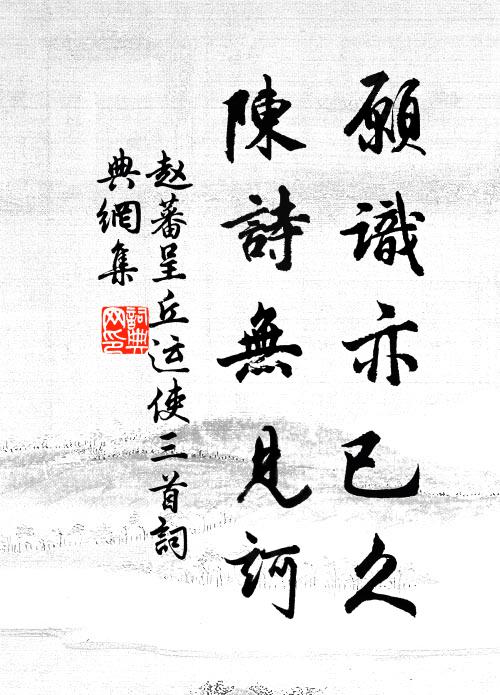 願識亦已久
陳詩無見訶
赵蕃呈丘运使三首詞
典網集
詞典
网印